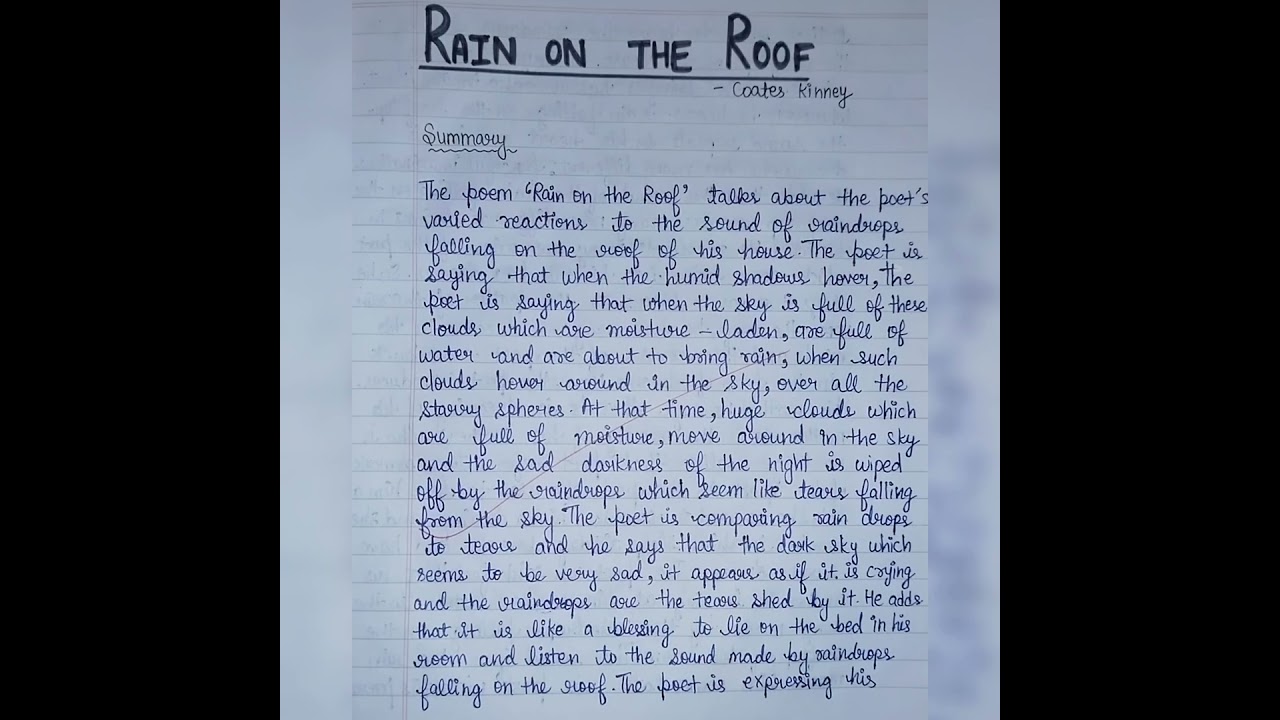 RAIN ON THE ROOF
- Coates Kinney
Summary
The poem 'Rain on the Roof' talks about the poet's
varied reactions to the sound of raindrops
falling on the roof of his house. The poet is
saying that when the humid shadows hover, the
poet is saying that when the sky is full of these
clouds which are moisture - laden, are full of
water and are about to bring rain, when such
clouds hover around in the sky, over all the
starry spheres. At that time, huge clouds which
are full of moisture, move around in the sky
and the sad darkness of the night is wiped
off by the raindrops which seem like tears falling
from the sky. The poet is comparing rain drops
to tears and he says that the dark sky which
seems to be very sad, it appears as if it is crying
and the raindrops are the tears shed by it. He adds
that it is like a blessing to lie on the bed in his
room and listen to the sound made by raindrops
falling on the roof. The poet is expressing his